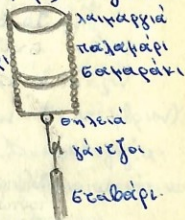 λαιμαργιά
παλαμάρι
σαμαράκι
θηλειά
γάντζοι
σταβάρι.